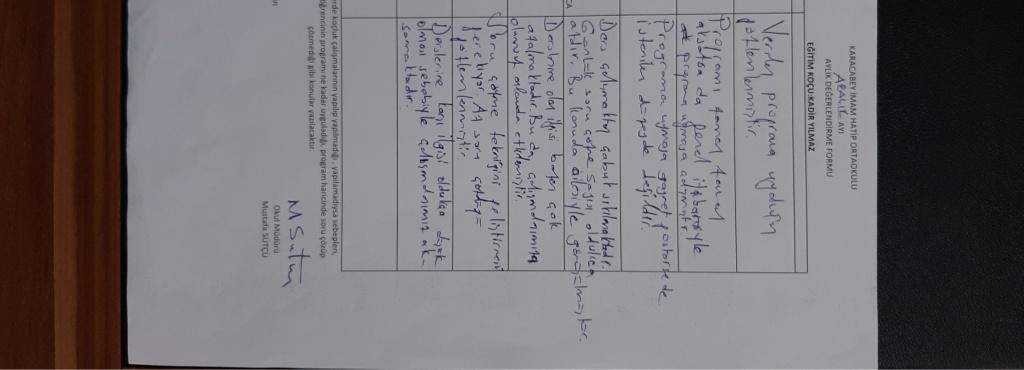 KARACABEY İMAM HATİP ORTAOKULU
ARALIK AYI
AYLIK DEĞERLENDİRME FORMU
EĞİTİM KOÇU:KADİR YILMAZ
Verilen programa uyduğu
gözlemlenmiştir.
Programı zaman zaman
aksatsa da genel itibariyle
programa uymaya çalışmıştır
Programa uymaya gayret gösterse de
istenilen düzeyde değildir.
Ders çalışmaktan çabuk sıkılmaktadır.
Günlük soru çözme sayısı oldukça
azdır. Bu konuda ailesiyle görüşülmüştür.
Derslerine olan ilgisi bazen çok
azalmaktadır. Bu da çalışmalarımızı
olumsuz etkilemiştir.
Soru çözme tekniğini geliştirmesi
gerekiyor. Az soru çözdüğü
gözlemlenmiştir.
Derslerine karşı ilgisi oldukça düşük
olması sebebiyle çalışmalarımız ak-
samaktadır.
erde koçluk çalışmalarının yapılıp yapılmadığı, yapılamadıysa sebepleri,
öğrencinin programı ne kadar uyguladığı, program haricinde soru çözüp
çözmediği gibi konular yazılacaktır.
M Sütçü
Okul Müdürü
Mustafa SÜTÇÜ